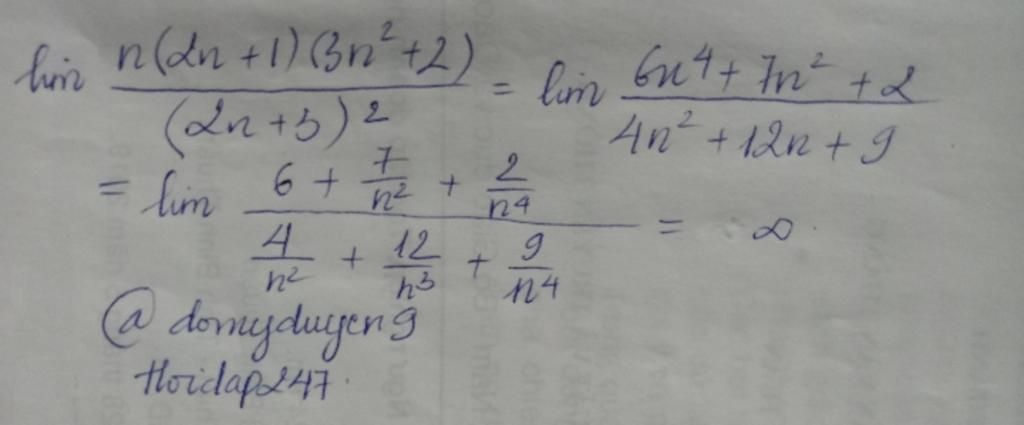 lim n(2n+1)(3n²+2)/(2n+3)² = lim 6n⁴+7n²+2/4n²+12n+9
= lim 6 + 7/n² + 2/n⁴ / 4/n² + 12/n³ + 9/n⁴ = ∞.
@ domyduyen9
Hoidap247.